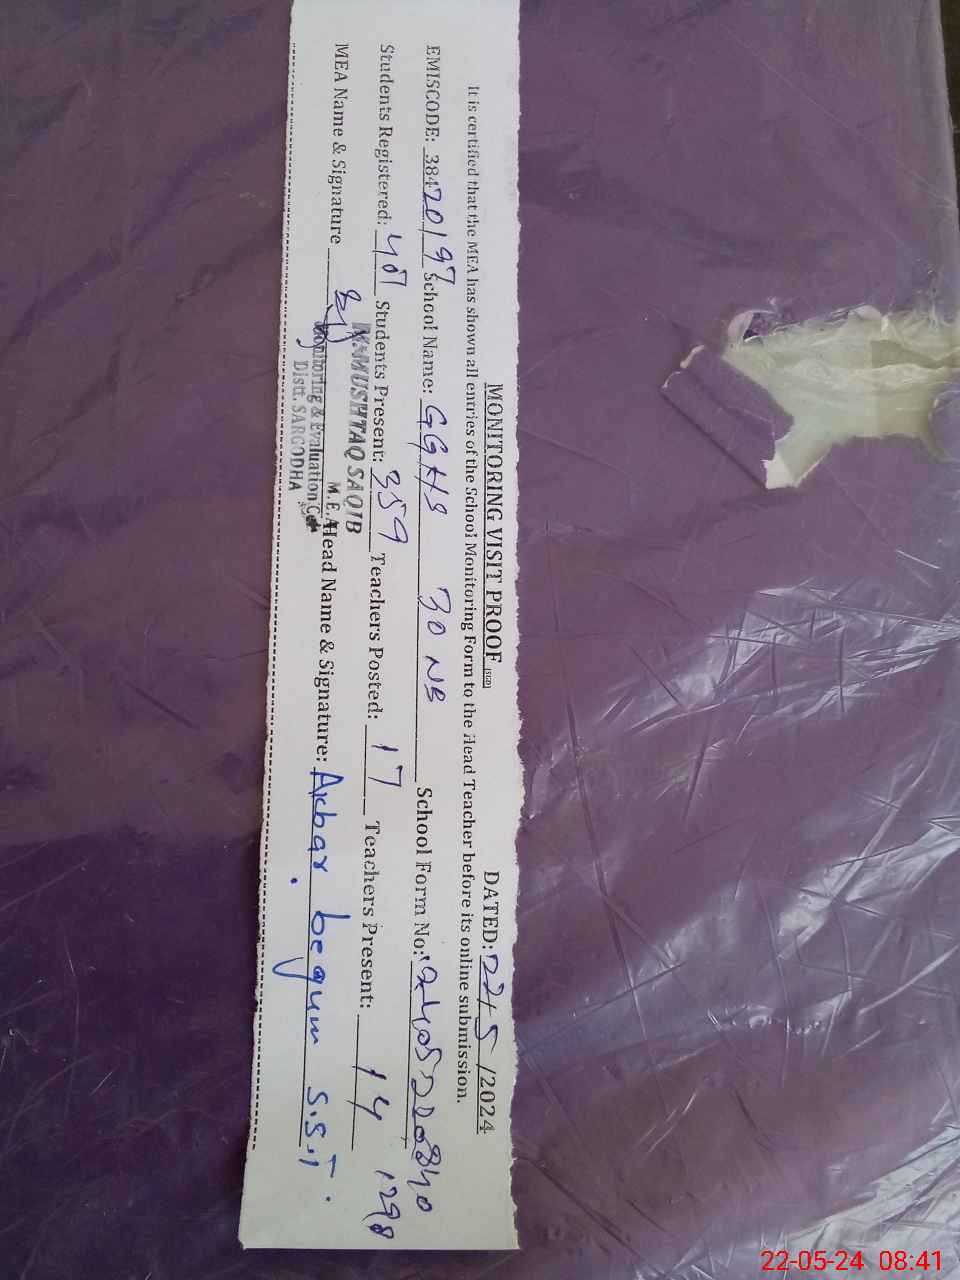 MONITORING VISIT PROOF (SGD) DATED: 22/5/2024
It is certified that the MEA has shown all entries of the School Monitoring Form to the Head Teacher before its online submission.
EMISCODE: 38420197 School Name: GGHS 30 NB School Form No:
Students Registered: Students Present: 359 Teachers Posted: 17 Teachers Present: 14 1298
M. MUSHTAQ SAQIB
MEA Name & Signature M.E.A Head Name & Signature: Akbar begum S.S.T.
Monitoring & Evaluation
Distt. SARGODHA
22-05-24 08:41